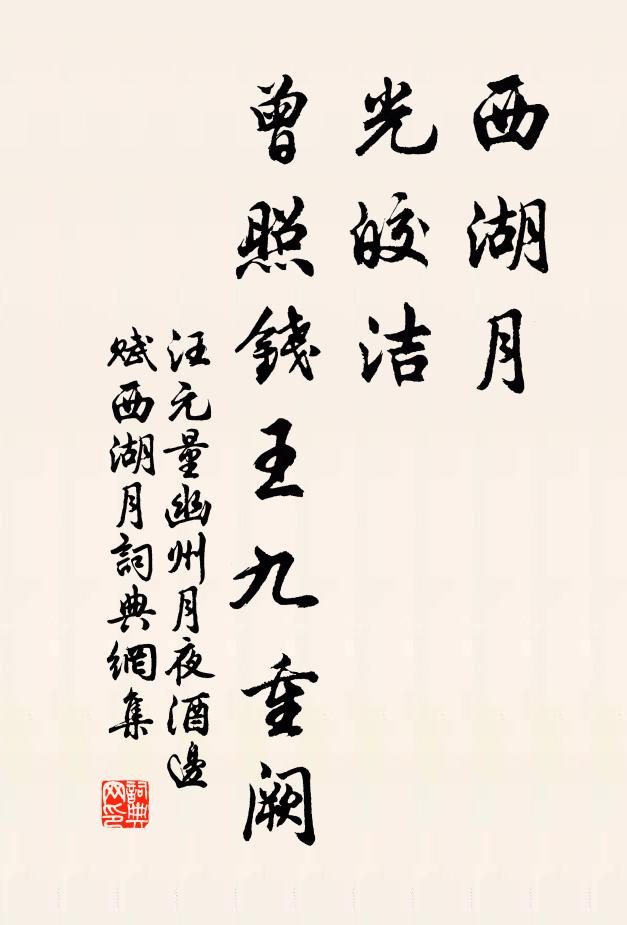 西湖月
光皎洁
曾照錢王九重阙
汪元量幽州月夜酒邊
賦西湖月詞典網集
詞典
网印